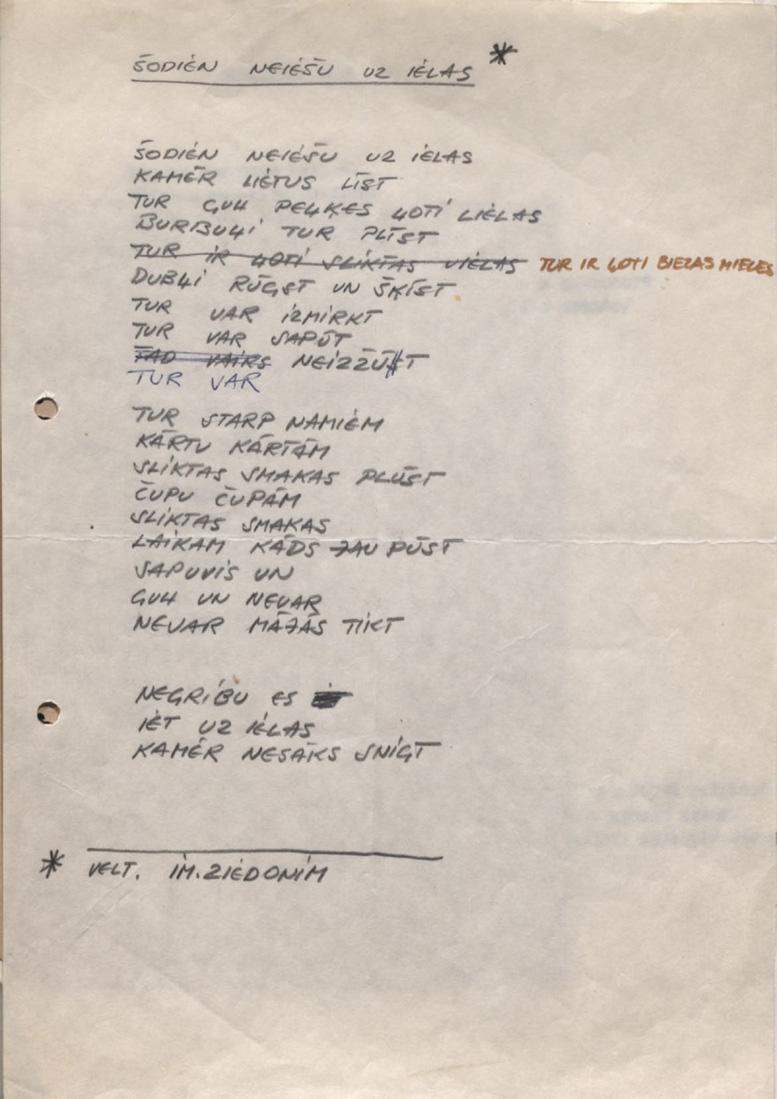 ŠODIEN NEIEŠU UZ IELAS *
ŠODIEN NEIEŠU UZ IELAS
KAMĒR LIETUS LĪST
TUR GUĻ PEĻĶES ĻOTI LIELAS
BURBUĻI TUR PLĪST
TUR IR ĻOTI SLIKTAS VIELAS TUR IR ĻOTI BIEZAS MIELES
DUBĻI RŪGST UN ŠĶĪST
TUR VAR IZMIRKT
TUR VAR SAPŪT
TAD VAIRS NEIZZŪST
TUR VAR
TUR STARP NAMIEM
KĀRTU KĀRTĀM
SLIKTAS SMAKAS PLŪST
ČUPU ČUPĀM
SLIKTAS SMAKAS
LAIKAM KĀDS JAU PŪST
SAPUVIS UN
GUĻ UN NEVAR
NEVAR MĀJĀS TIKT
NEGRIBU ES
IET UZ IELAS
KAMĒR NESĀKS SNIGT
* VELT. IM. ZIEDONIM